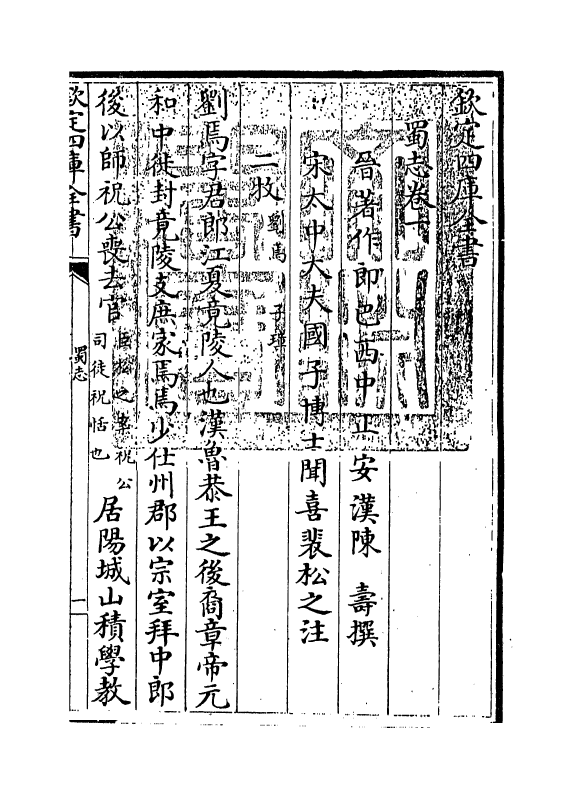 欽定四庫全書
蜀志卷一
晉著作郎巴西中正安漢陳 壽撰
宋太中大夫國子博士聞喜裴松之注
二牧劉焉 子璋
劉焉字君郎江夏竟陵人也漢魯恭王之後裔章帝元
和中徙封竟陵支庶家焉焉少仕州郡以宗室拜中郎
後以師祝公喪去官臣松之案祝公
司徒祝恬也
居陽城山積學教
欽定四庫全書
蜀志
一